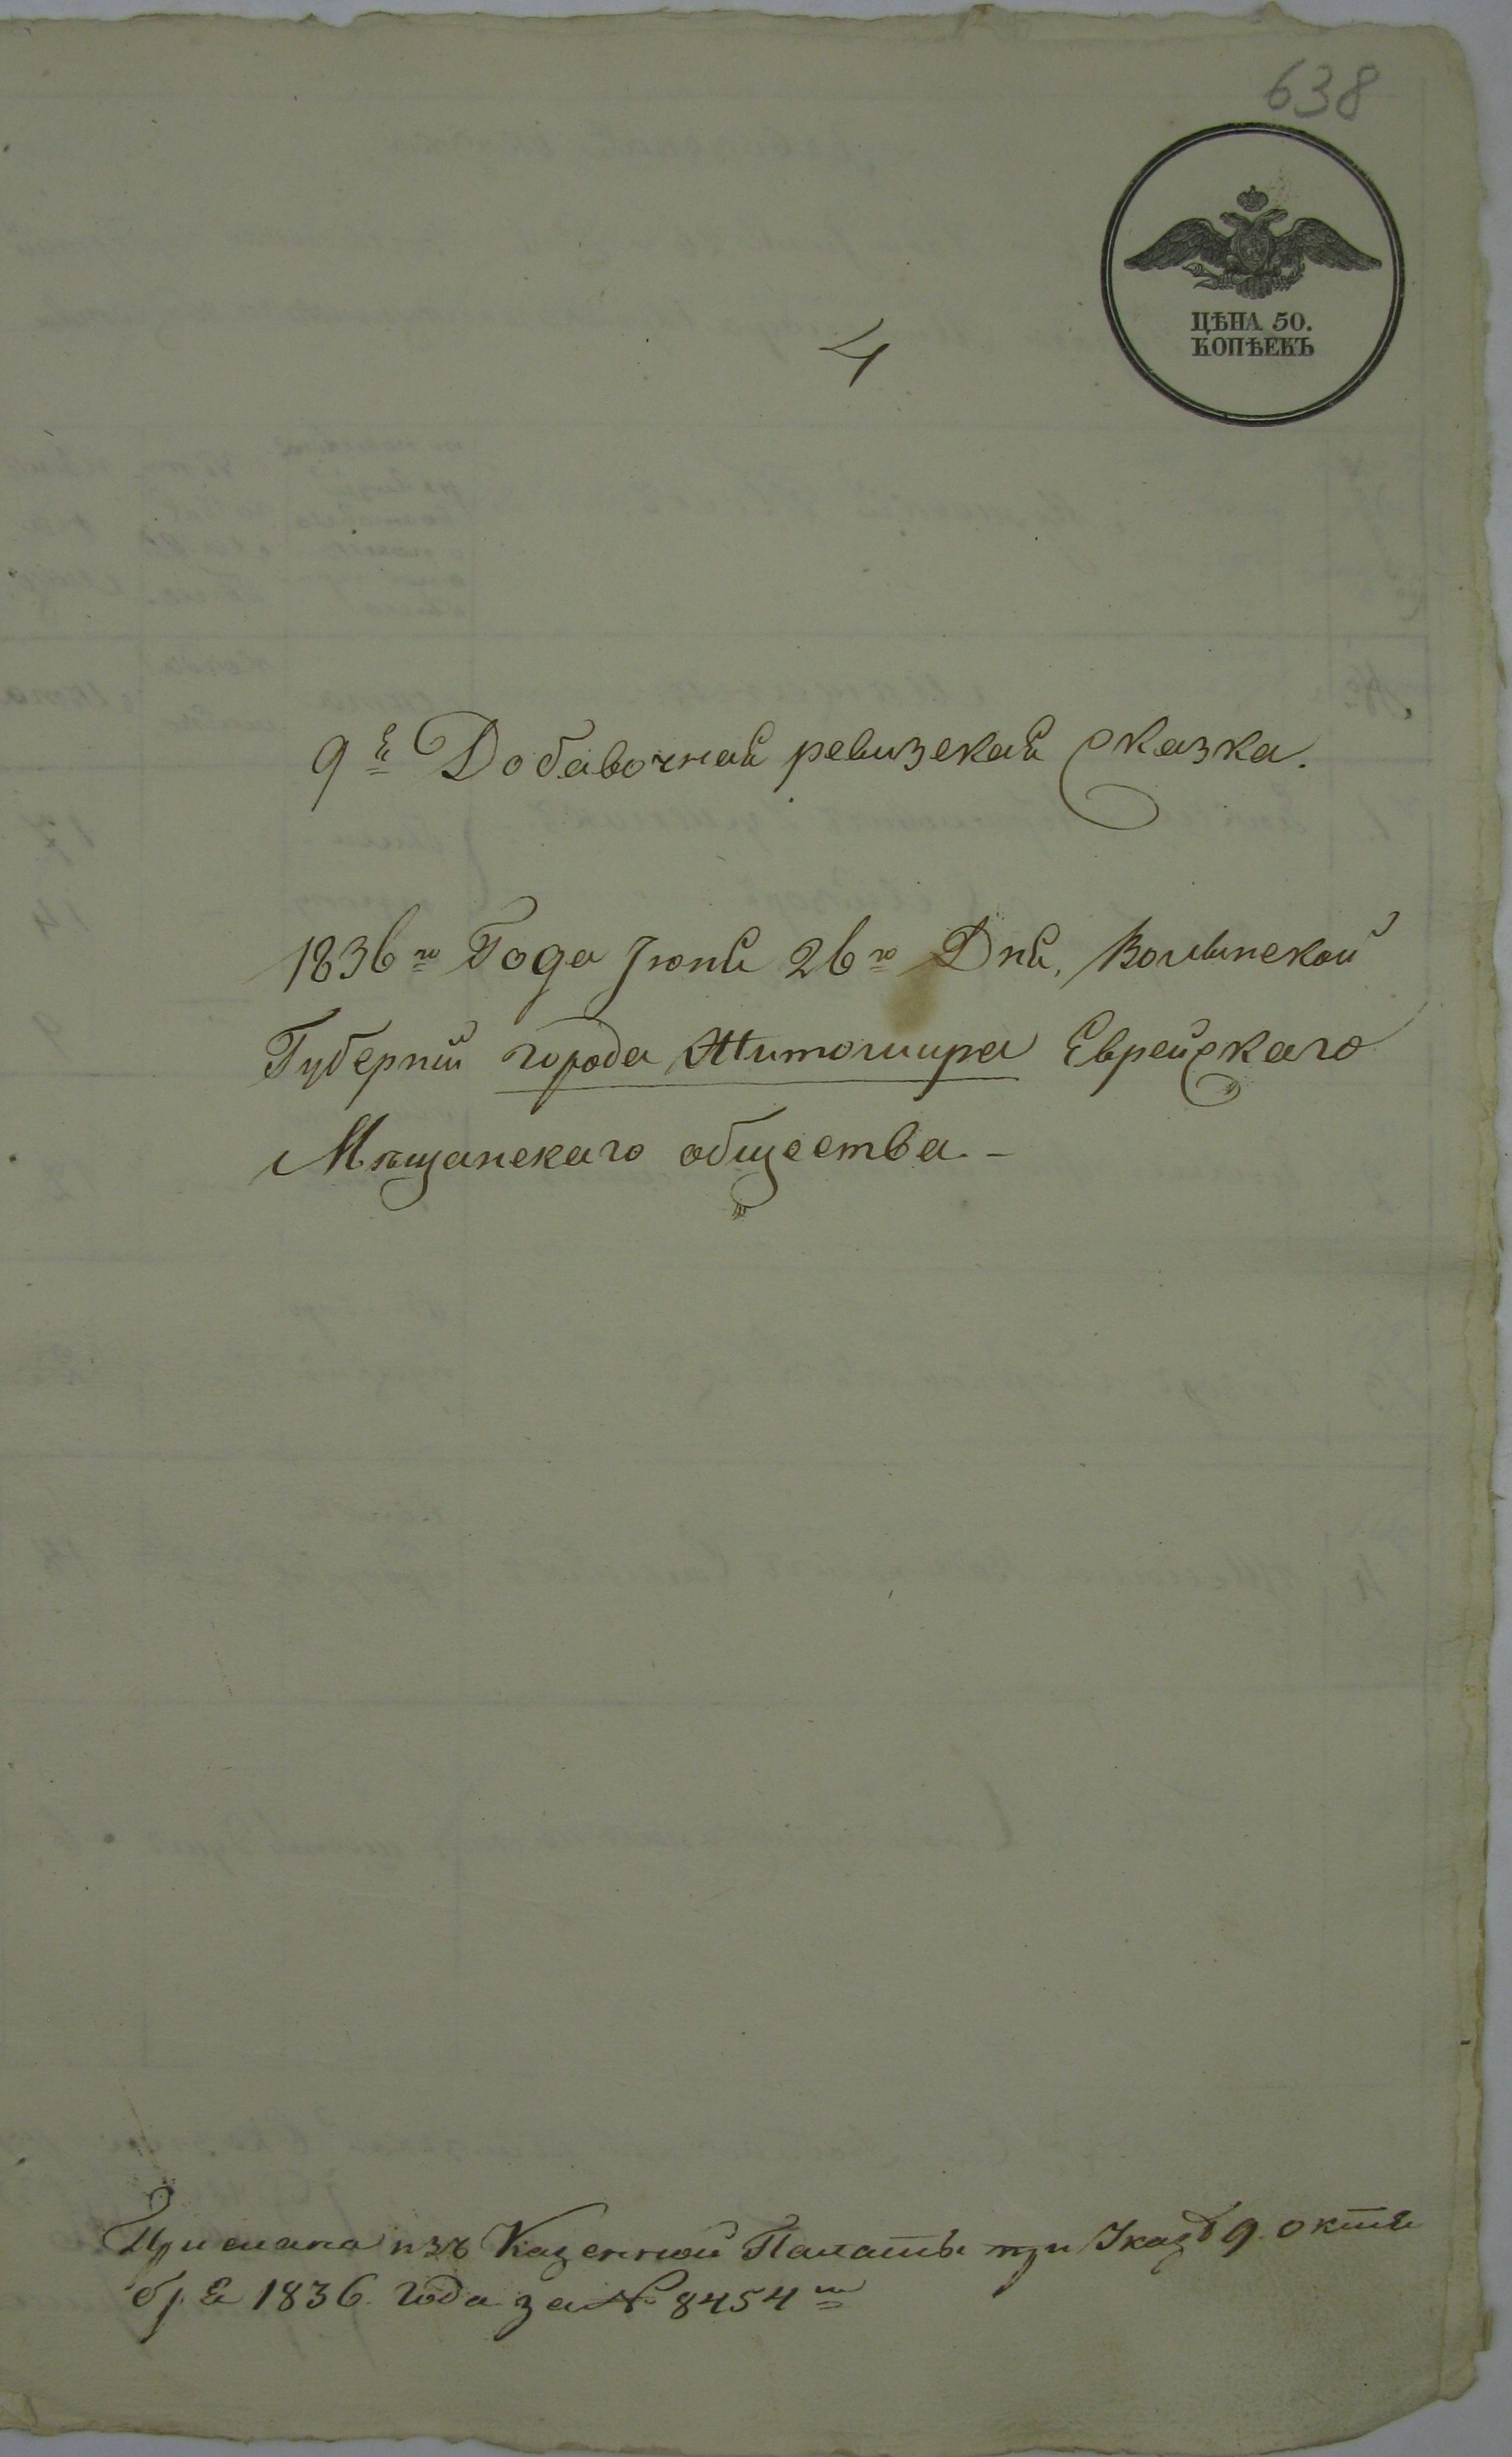 638
ЦѢНА 50.
КОПѢЕКЪ
4
9я Добавочная ревизская сказка.
1836го Года Іюня 26го Дня, Волынской
Губерніи города Житомира Еврейскаго
Мѣщанскаго общества.-
Прислана изъ Казенной Палаты при Указѣ 9. октя
бря 1836. года за № 8454м